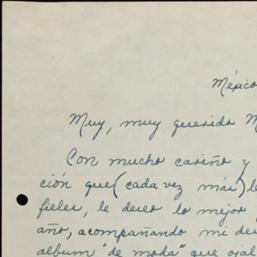 México
Muy, muy querido M
Con mucho cariño y
ción que (cada vez más) le
fieles, le deseo lo mejor
año, acompañando mi de
album "de moda" que ojal